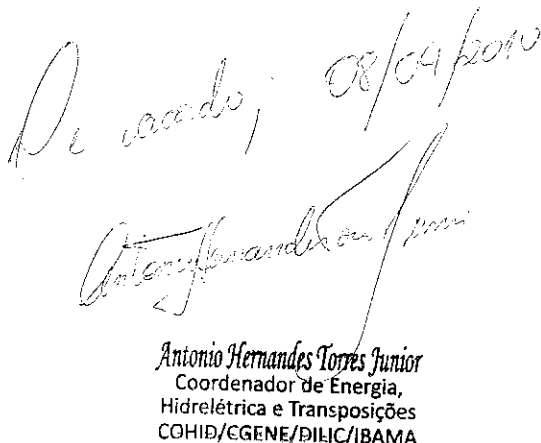 De acordo; 08/04/2010
Antonio Hernandes Torres Junior
Antonio Hernandes Torres Junior
Coordenador de Energia,
Hidrelétrica e Transposições
COHID/CGENE/DILIC/IBAMA